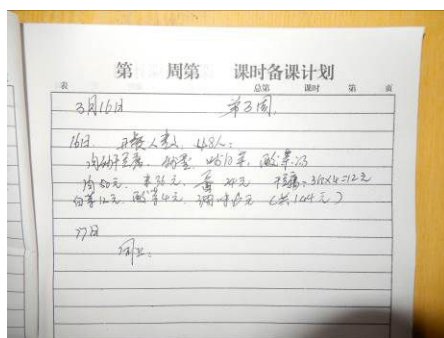 第 周第 课时备课计划
表 总第 课时 第 页
3月16日 第3周
16日 开餐人数:48人:
肉炒豆腐、 白菜、酸菜汤
肉50元、米36元、 24元 豆腐:3斤×4=12元
白菜12元 酸菜4元、调味6元(共144元)
17日
同上: